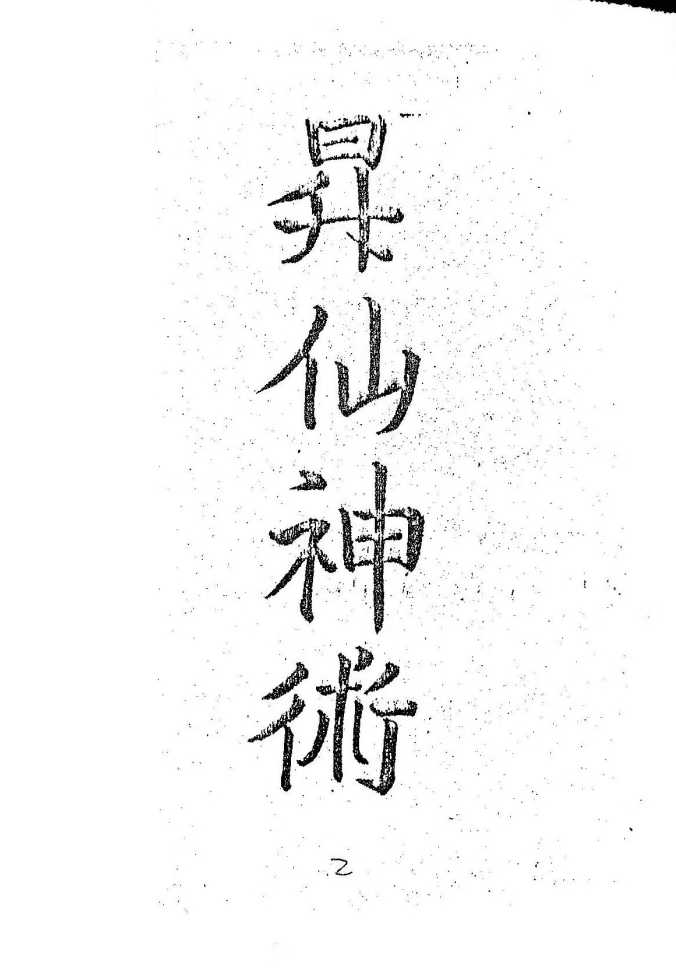 昇仙神術
2